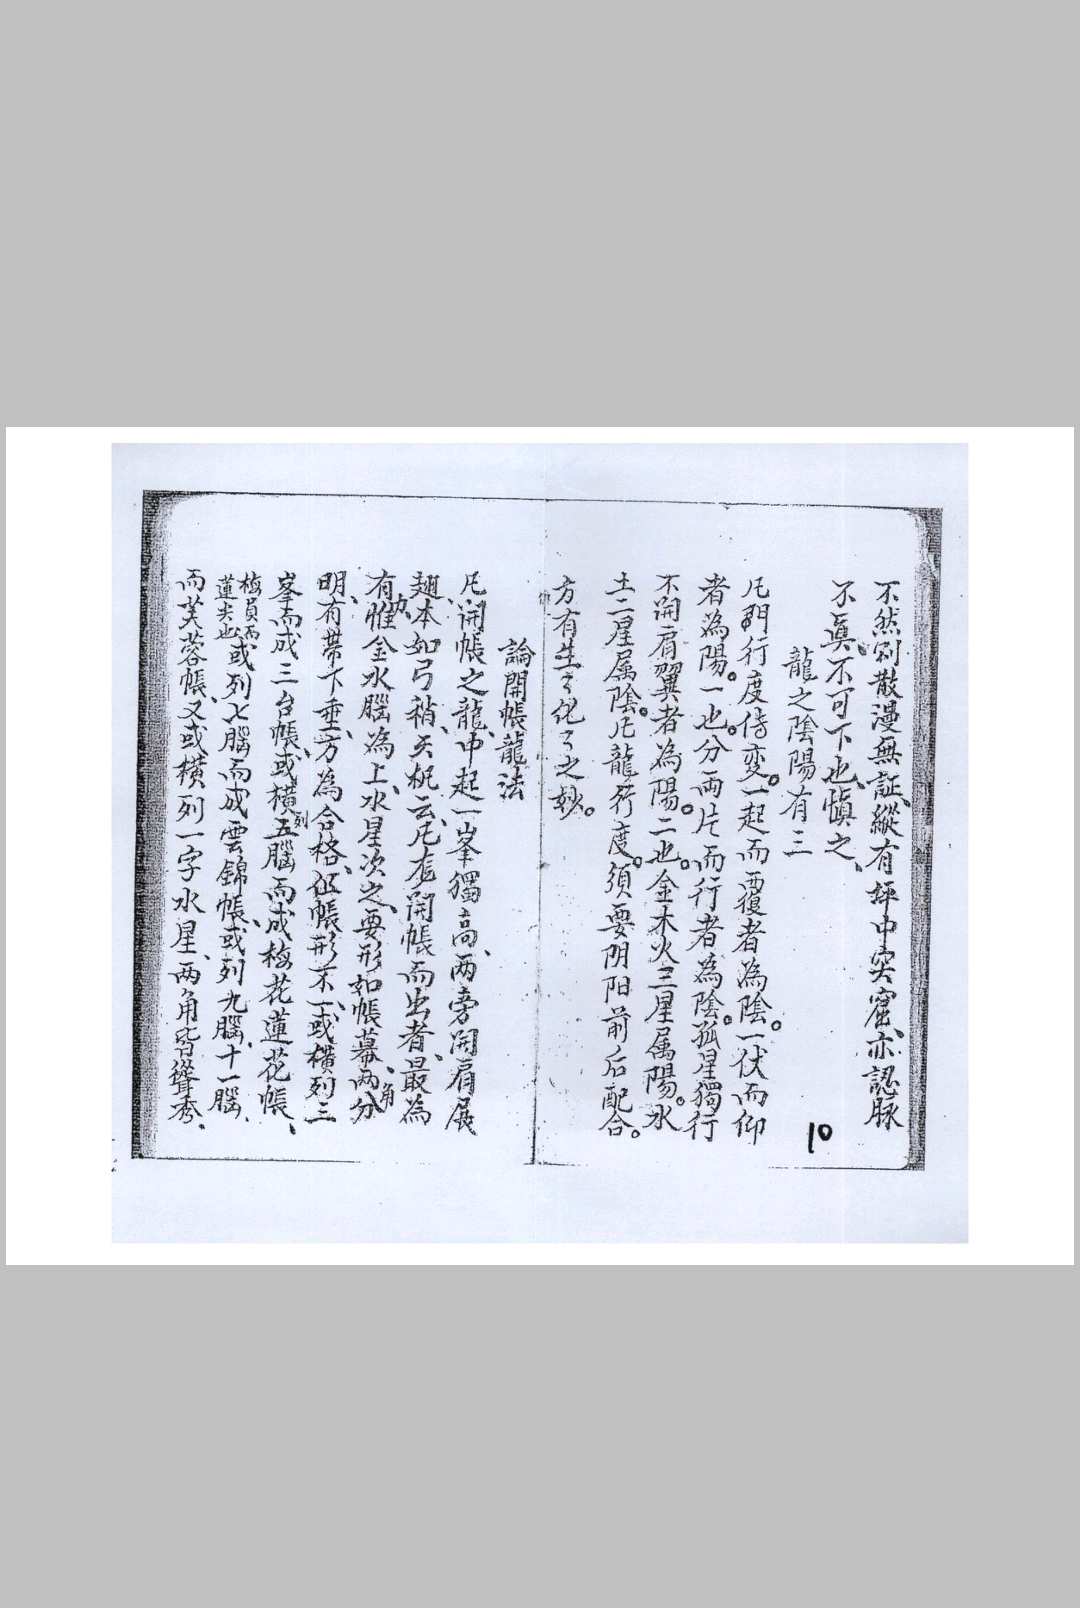 不然則散漫無証、縱有坪中突窟、亦認脉
不眞、不可下也、慎之、
龍之陰陽有三
凡鬥行度侍变。一起而覆者為陰。一伏而仰
者為陽。一也。分兩片而行者為陰。孤星獨行
不開肩翼者為陽。二也。金木火三星属陽。水
土二星属陰。凡龍行度。須要阴阳前后配合。
方有生之化之妙。
論開帳龍法
凡開帳之龍、中起一峯獨高、两旁開肩展
翅、本如弓稍、天梘云、凡龙開帳而出者、最為
有力、惟金水腦為上、水星次之、要形如帳幕、两角分
明、有帶下垂、方為合格、但帳形不一、或橫列三
峯而成三台帳、或橫列五腦而成梅花蓮花帳、
梅員而
蓮尖也
或列七腦而成雲錦帳、或列九腦、十一腦、
而芙蓉帳、又或橫列一字水星、两角皆聳秀、
10